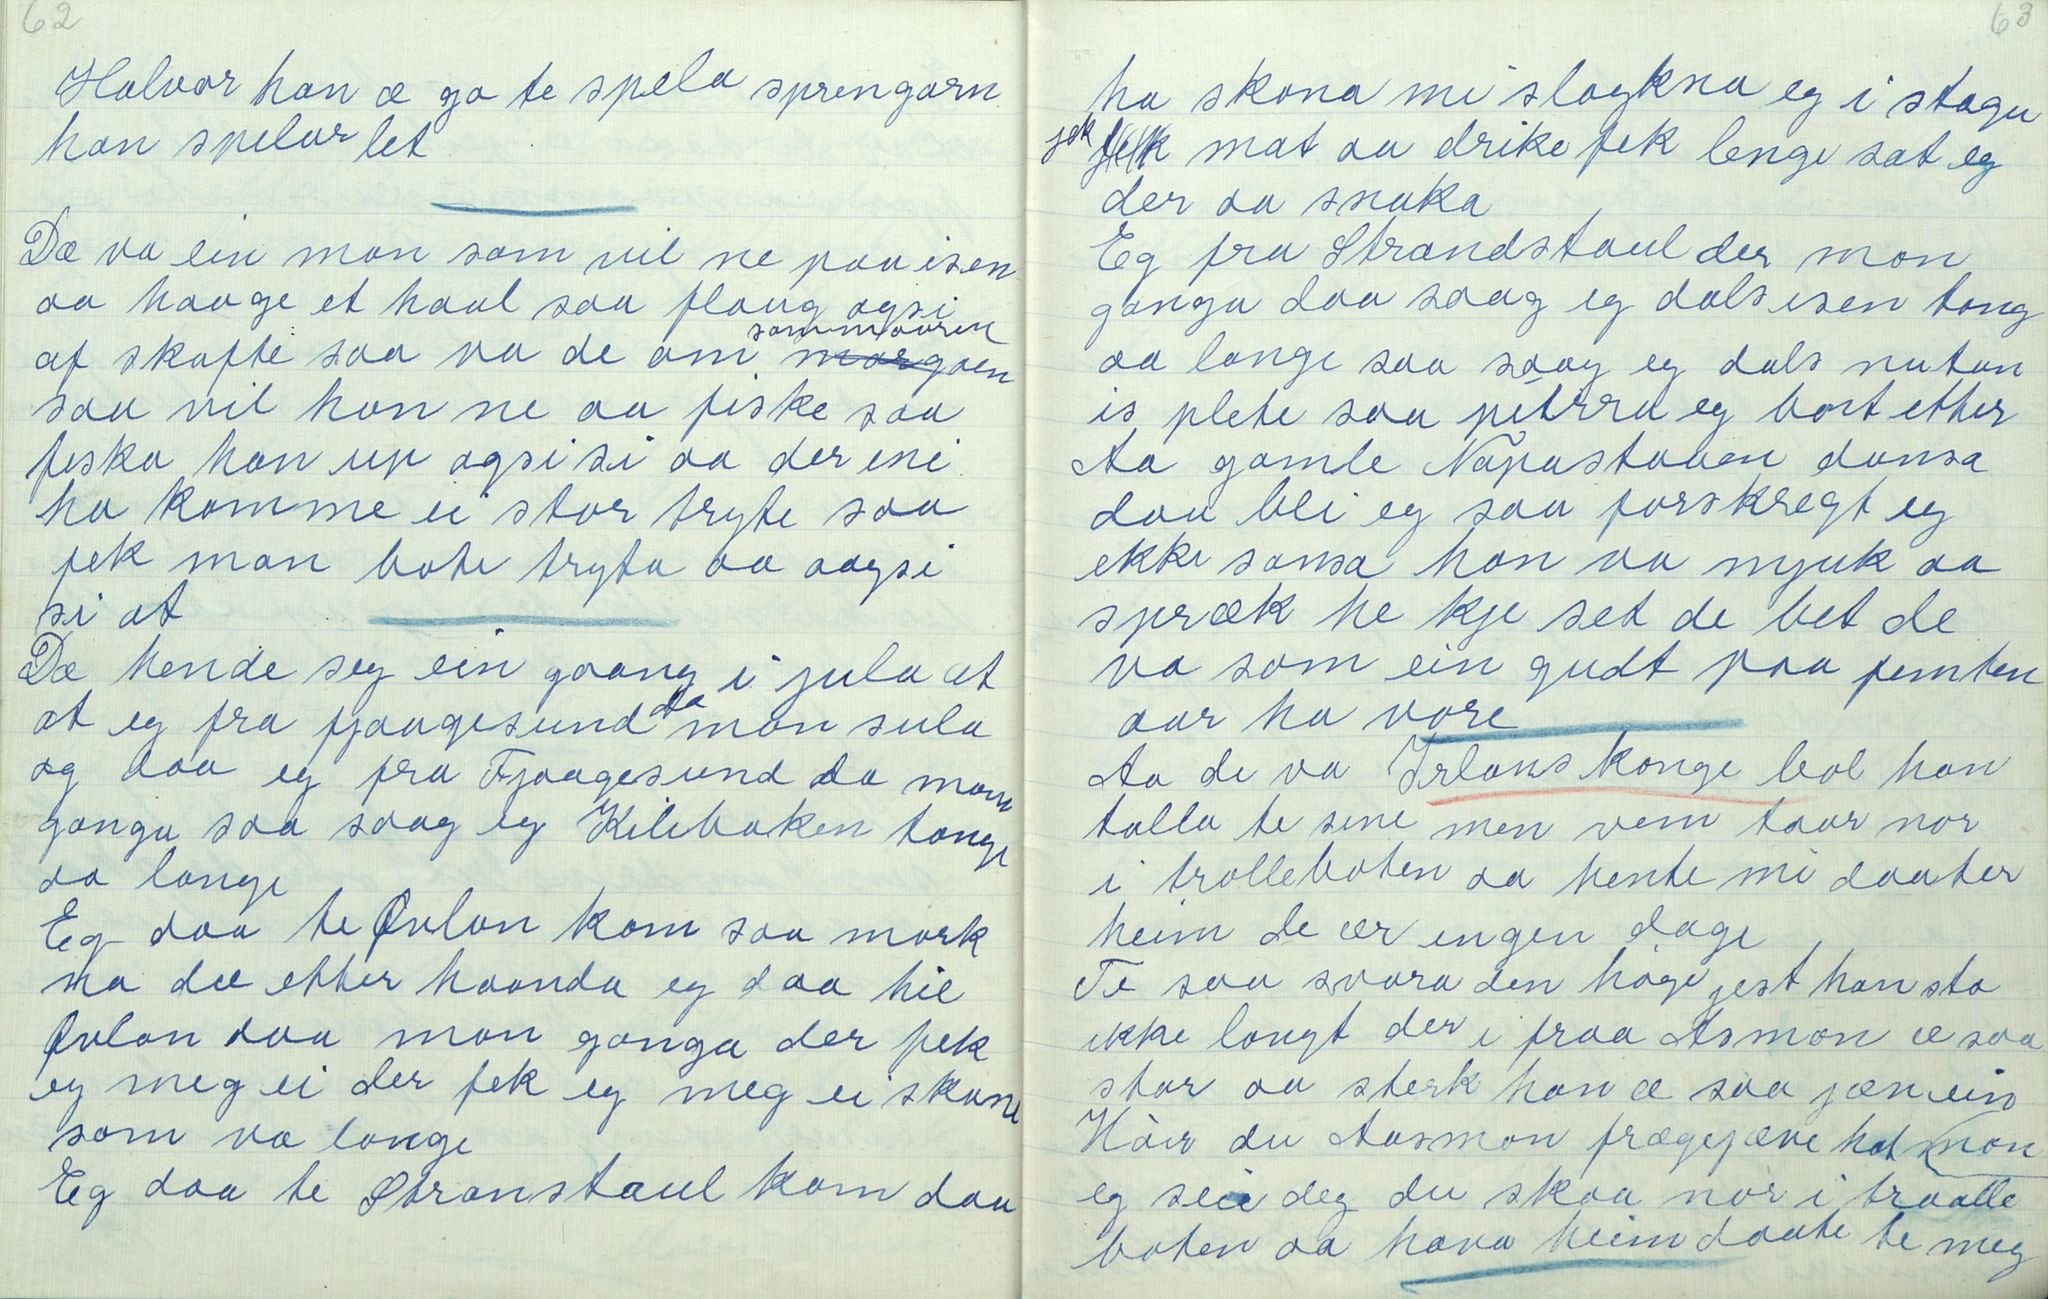 62
Halvor han æ go te spela sprengarn
han spelar let
Dæ va ein man som vil ne paa isen
aa hagge et haal saa flaug ogsi
af skafte saa va de om sommaaren morgaen
saa vil han ne aa fiske saa
feska han up ogsi si aa der ini
ha komme ei stor tryte saa
fek man bote tryta aa aagsi
si at
Dæ hende seg ein gaang i jula at
at eg fra fjaagesund da mon sula
og daa eg fra Fjaagesund da mon
ganga saa saag eg Kilebaken tange
aa lange
Eg daa te Qvlan kom saa mork
na dæ etter haanda eg daa hie
Qvlan daa mon ganga der fek
eg meg ei der fek eg meg ei skone
som va longe
Eg daa te Stranstaul kom daa
63
ha skona mi slogkna eg i stogu
jek fek mat aa drike fek lenge sat eg
der aa snaka
Eg fra Strandstaul der mon
ganga daa saag eg dals isen tong
aa lange saa saag eg dals nutan
is plete saa petrra eg bort etter
Aa gamle Napastaaen dansa
daa bli eg saa forskregt eg
ekke sansa han va mjuk aa
spræk he kje set de bet de
va som ein gudt paa femten
aar ha vore
Aa de va Irlans konge bol han
talla te sine men vem taar nor
i trolleboten aa hente mi daater
heim de ær engen dage
Te saa svara den hòge jest han sto
ikke langt der i fraa Asmon æ saa
stor aa sterk han æ saa jæn ein
Hòir du Aasmon frægejæve hat mon
eg seie deg du skaa nor i traalle
boten aa hava heim daate te meg